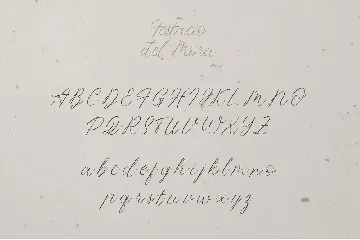 del Mara
A B C D E F G H I J K L M N O
P Q R S T U V W X Y Z
a b c d e f g h i j k l m n o
p q r s t u v w x y z